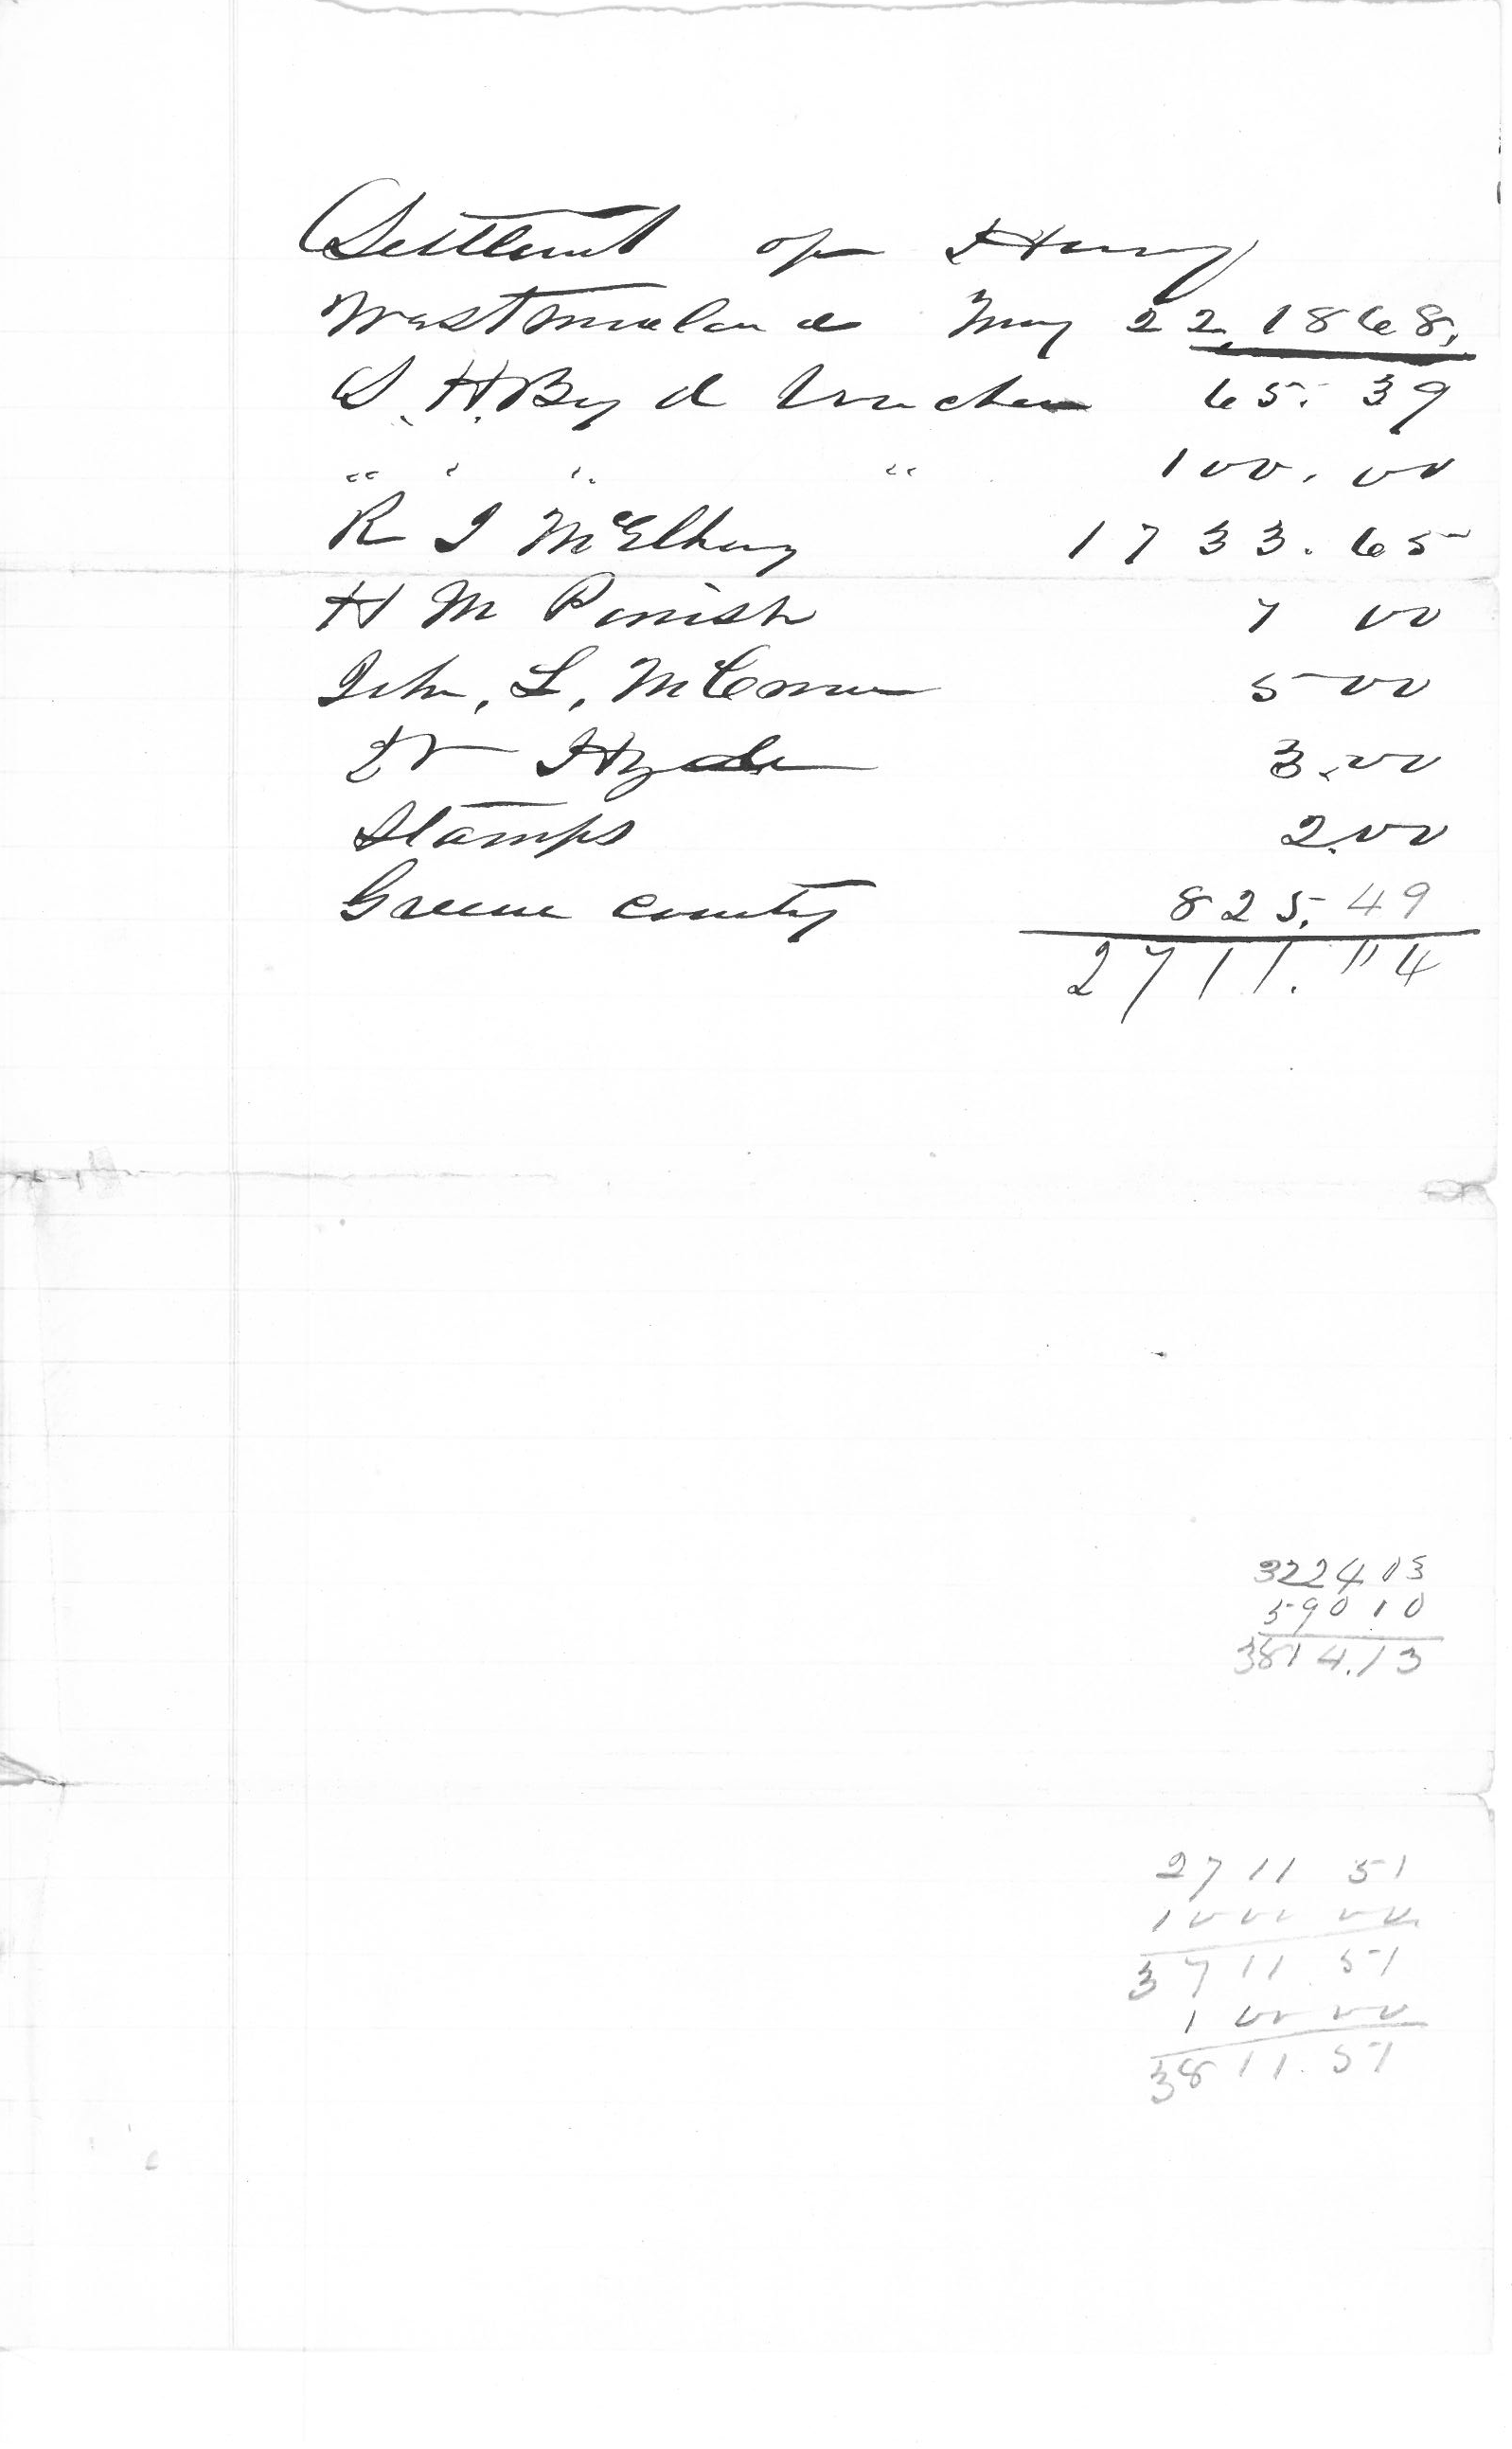 Settlemt of Henry
Westmoreland May 22, 1868,
S. H. Byrd Voucher 65.39
" " " " 100.00
R J McElhany 1733.65
H M Parrish 7 00
John, L, McCraw 5 00
Dr Hyde 3.00
Stamps 2.00
Greene County 825.49
2711.114
3224 03
590 10
3814.13
2711 51
1000 00
3711.51
100 00
3811.51